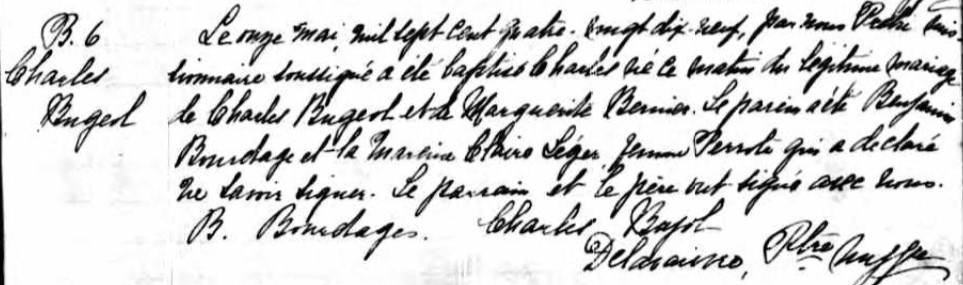 B. 6
Charles
Bugeol
Le onze mai, mil sept cent quatre-vingt dix neuf, par nous Prêtre mis-
sionnaire soussigné a été baptisé Charles né ce matin du légitime mariage
de Charles Bugeol et de Marguerite Bernier. Le parein a été Benjamin
Bourdage et la Mareine Claire Léger, femme Perrote qui a declaré
ne savoir signer. Le parrain et le père ont signé avec nous.
B. Bourdages. Charles Bujol
Ptre